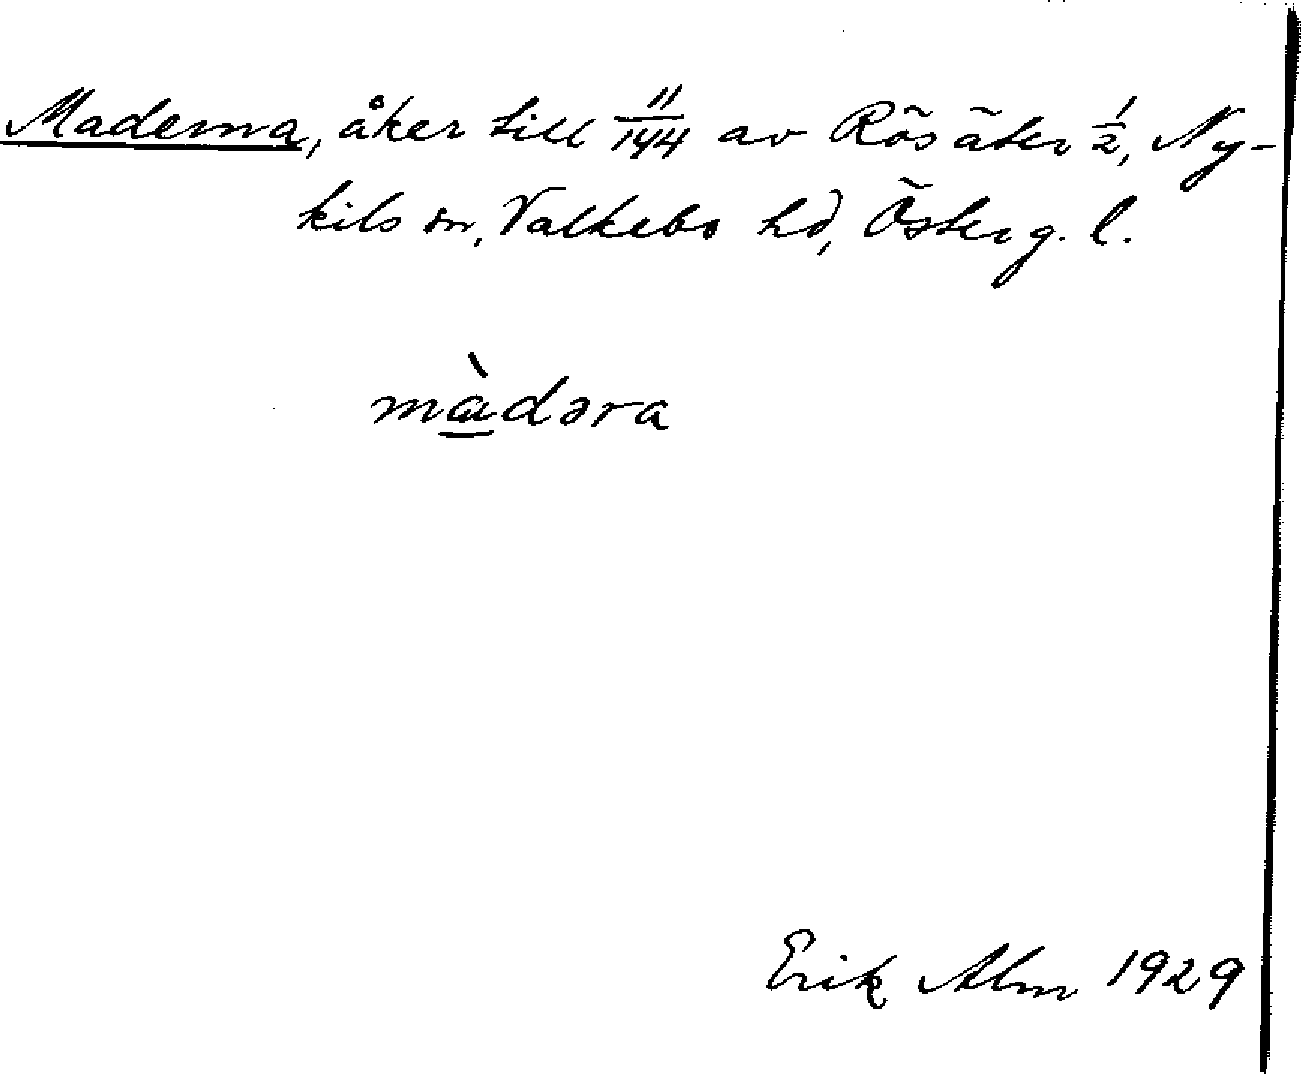 Maderna, åker till 11/144 av Rösäter 1/2, Ny-
kils sn, Valkebo hd, Österg. l.
mà̱dəra
Erik Alm 1929